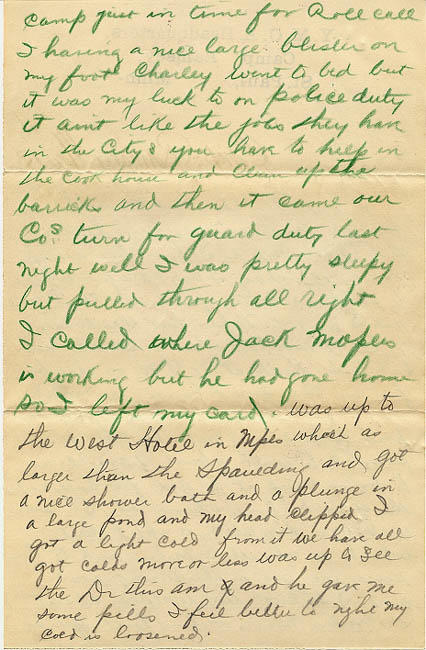 camp just in time for Roll call
I having a nice large blister on
my foot Charley went to bed but
it was my luck to on police duty
it aint like the jobs they have
in the City & you have to help in
the cook house and clean up the
barricks and then it came our
Cos turn for guard duty last
night well I was pretty sleepy
but pulled through all right
I called where Jack Mopes
is working but he had gone home
so I left my card. was up to
the West Hotel in Mpls which as
larger than the Spaulding and got
a nice shower bath and a plunge in
a large pond and my head clipped I
got a light cold from it we have all
got colds more or less was up to see
the Dr this am & and he gave me
some pills I feel better to night my
cold is loosened.